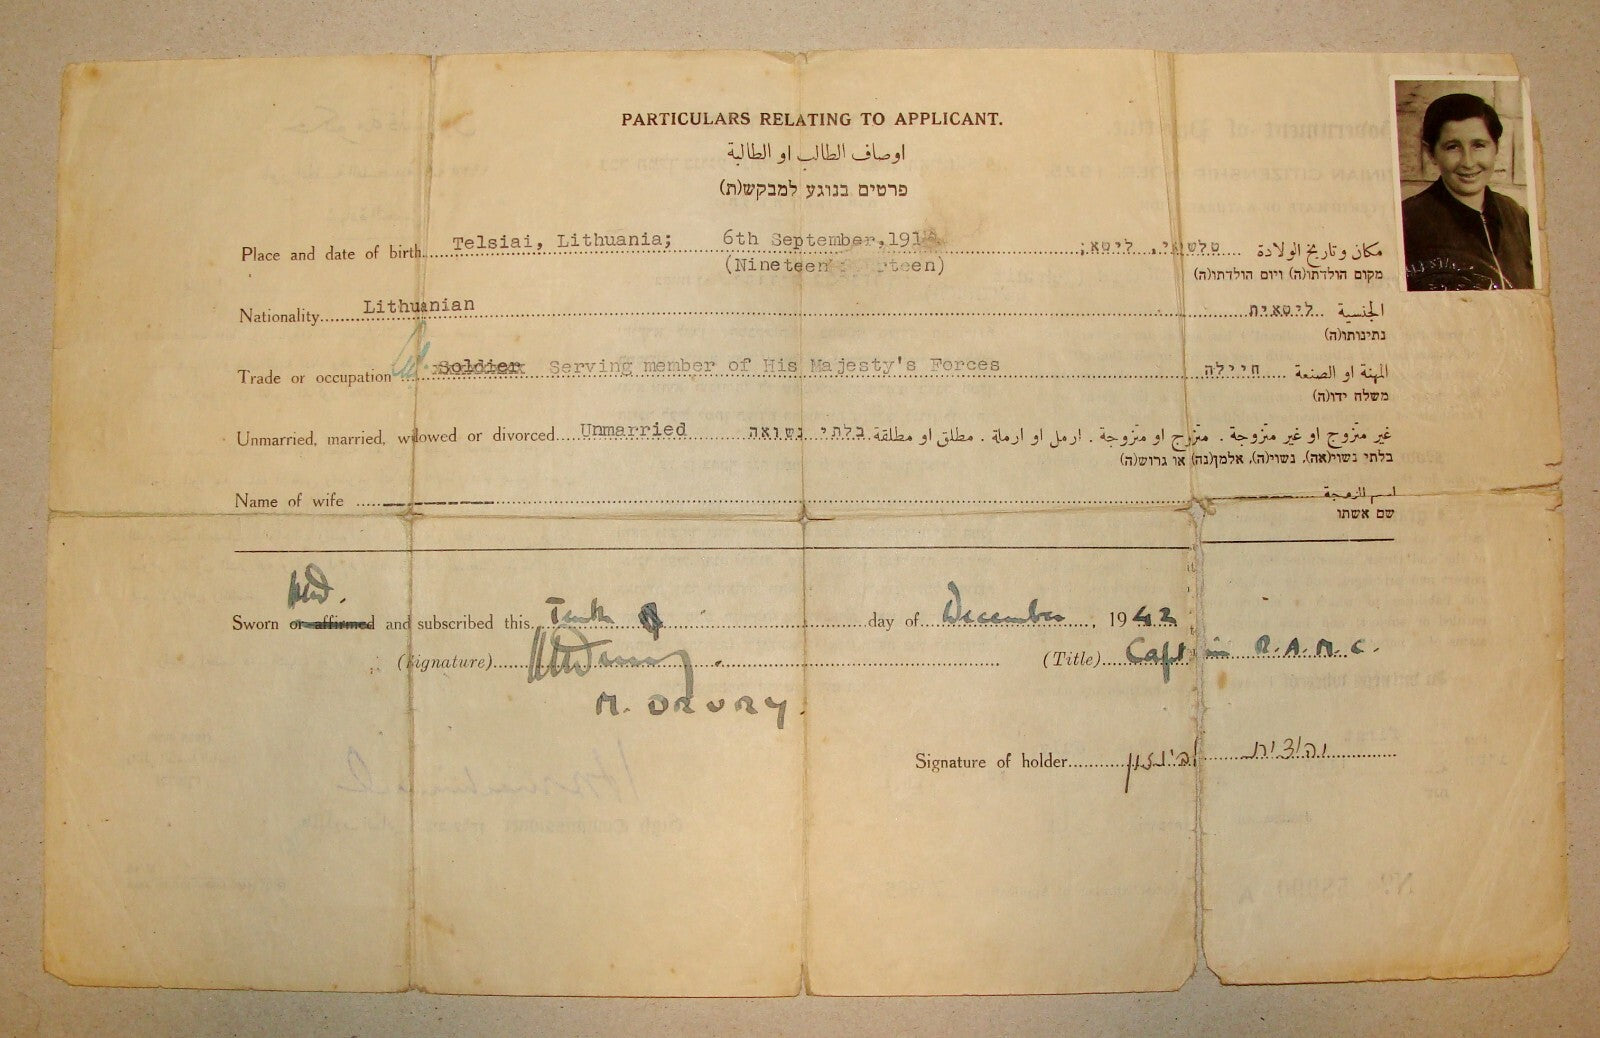 PARTICULARS RELATING TO APPLICANT.
اوصاف الطالب او الطالبة
פרטים בנוגע למבקש(ת)
Place and date of birth Telsiai, Lithuania; 6th September, 191 טלשאי, ליטא; مكان وتاريخ الولادة
(Nineteen teen) מקום הולדתו(ה) ויום הולדתו(ה)
Nationality Lithuanian ליטאית الجنسية
נתינותו(ה)
Trade or occupation Soldier Serving member of His Majesty's Forces חיילה المهنة او الصنعة
משלח ידו(ה)
Unmarried, married, widowed or divorced Unmarried בלתי נשואה غير متزوج او غير متزوجة . متزوج او متزوجة . ارمل او ارملة . مطلق او مطلقة
בלתי נשוי(אה), נשוי(ה), אלמן(נה) או גרוש(ה)
Name of wife اسم الزوجة
שם אשתו
Sworn or affirmed and subscribed this Tenth day of December, 1942
(Signature) (Title) Captain R.A.M.C.
M. DRURY.
Signature of holder